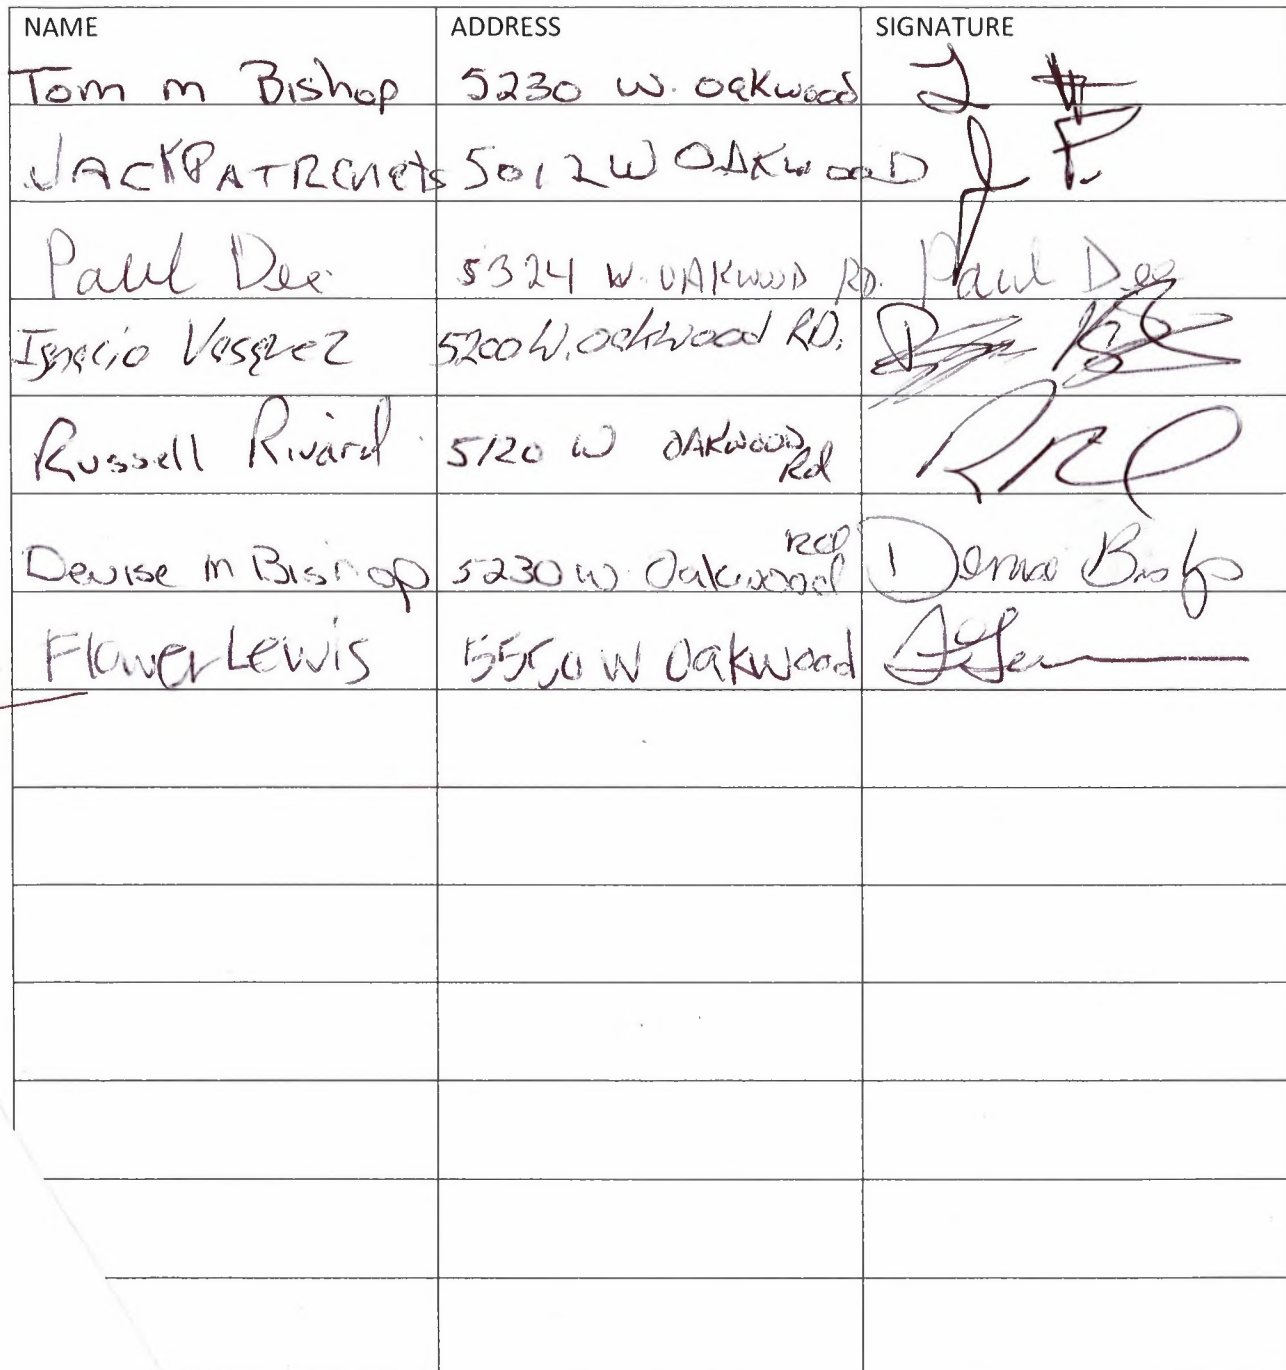 NAME ADDRESS SIGNATURE
Tom m Bishop 5230 W. Oakwood
JACK 5012 W OAKWOOD
Paul Dee 5324 W. OAKWOOD RD. Paul Dee
Ignacio Vasquez 5200 W. Oakwood RD.
Russell Rivard 5120 W OAKWOOD Rd
Denise m Bishop 5230 W Oakwood Rd Denise Bishop
Flower Lewis 5550 W Oakwood